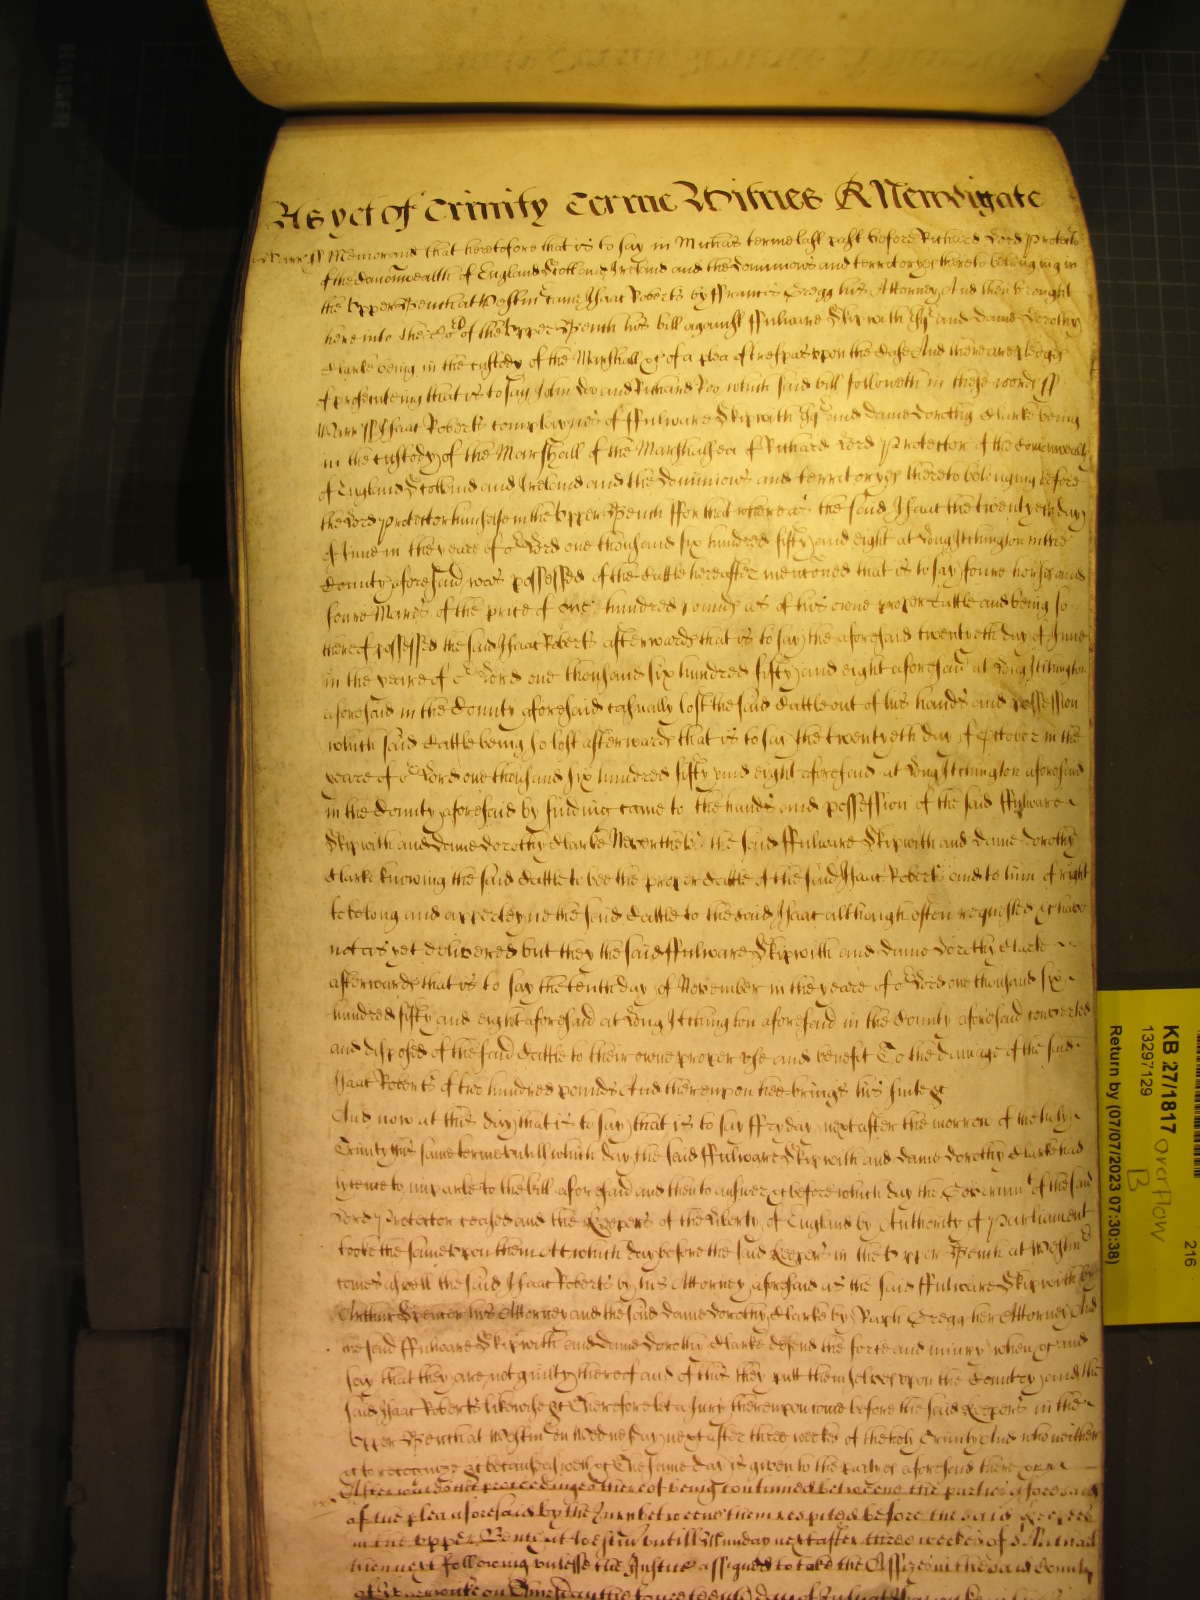 As yet of Trinity Terme Witnes R Newdigate
Warr ss Memorand that heretofore that is to say in Michas terme last past before Richard Lord Protector
of the Comonwealth of England Scotland Ireland and the Dominions and territoryes thereto belonging in
the Upper Bench at Westm came Isaac Roberts by Francis Gregg his Attorney And then brought
here into the Court of the Upper Bench his bill against ffulware Skipwith Esqr and Dame Dorothy
Clarke being in the custody of the Marshall &c of a plea of trespas upon the Case And there are pledges
of prosecuteing that is to say John Doo and Richard Roo which said bill followeth in these words ss
Warr ss Isaac Roberts complaynes of ffulware Skipwith Esqr and Dame Dorothy Clarke being
in the custody of the Marshall of the Marshalsea of Richard Lord Protector of the Comonwealth
of England Scotland and Ireland and the Dominions and territoryes thereto belonging before
the Lord Protector himselfe in the Upper Bench ffor that whereas the said Isaac the twentyeth day
of June in the yeare of or Lord one thousand six hundred fifty and eight at Long Itchington in the
County aforesaid was possessed of the Cattle hereafter mentioned that is to say foure horses and
foure Mares of the price of one hundred pounds as of his owne proper Cattle and being so
thereof possessed the said Isaac Roberts afterwards that is to say the aforesaid twentyeth day of June
in the yeare of or Lord one thousand six hundred fifty and eight aforesaid at Long Itchington
aforesaid in the County aforesaid casually lost the said Cattle out of his hands and possession
which said Cattle being so lost afterwards that is to say the twentyeth day of October in the
yeare of or Lord one thousand six hundred fifty and eight aforesaid at Long Itchington aforesaid
in the County aforesaid by finding came to the hands and possession of the said ffulware
Skipwith and Dame Dorothy Clarke Neverthels the said ffulware Skipwith and Dame Dorothy
Clarke knowing the said Cattle to bee the proper Cattle of the said Isaac Roberts and to him of right
to belong and apperteyne the said Cattle to the said Isaac although often requested &c have
not as yet delivered but they the said ffulware Skipwith and Dame Dorothy Clarke
afterwards that is to say the tenth day of November in the yeare of or Lord one thousand six
hundred fifty and eight aforesaid at Long Itchington aforesaid in the County aforesaid converted
and disposed of the said Cattle to their owne proper use and benefit To the damage of the said
Isaac Roberts of two hundred pounds And thereupon hee brings his suite &c
And now at this day that is to say that is to say ffryday next after the morrow of the holy
Trinity this same terme untill which day the said ffulware Skipwith and Dame Dorothy Clarke had
lycence to imparle to the bill aforesaid and then to answer &c before which day the Governmt of the said
Lord Protector ceased and the Keepers of the Liberty of England by Authority of Parliament
tooke the same upon them Att which day before the said Keepers in the Upper Bench at Westm
comes aswell the said Isaac Roberts by his Attorney aforesaid as the said ffulware Skipwith by
Arthur Spencer his Attorney and the said Dame Dorothy Clarke by Raph Gregg her Attorney And
the said ffulware Skipwith and Dame Dorothy Clarke defend the force and injury when &c and
say that they are not guilty thereof and of this they putt themselves upon the Country and the
said Isaac Roberts likewise &c Therefore let a Jury thereupon come before the said Keepers in the
Upper Bench at Westm on Wednesday next after three weekes of the holy Trinity And who neither
&c to recognize &c because aswell &c The same day is given to the partyes aforesaid there
Afterwards the proceedings thereof being continued betweene the parties aforesaid
of the plea aforesaid by the Jury betweene them respited before the said Keepers
in the Upper Bench at Westm untill Munday next after three weekes of St Michael
then next following unlesse the Justices assigned to take the Assizes in the said County
of Warwicke on
KB 27/1817 overflow
B
13297129
216
Return by (07/07/2023 07:30:38)